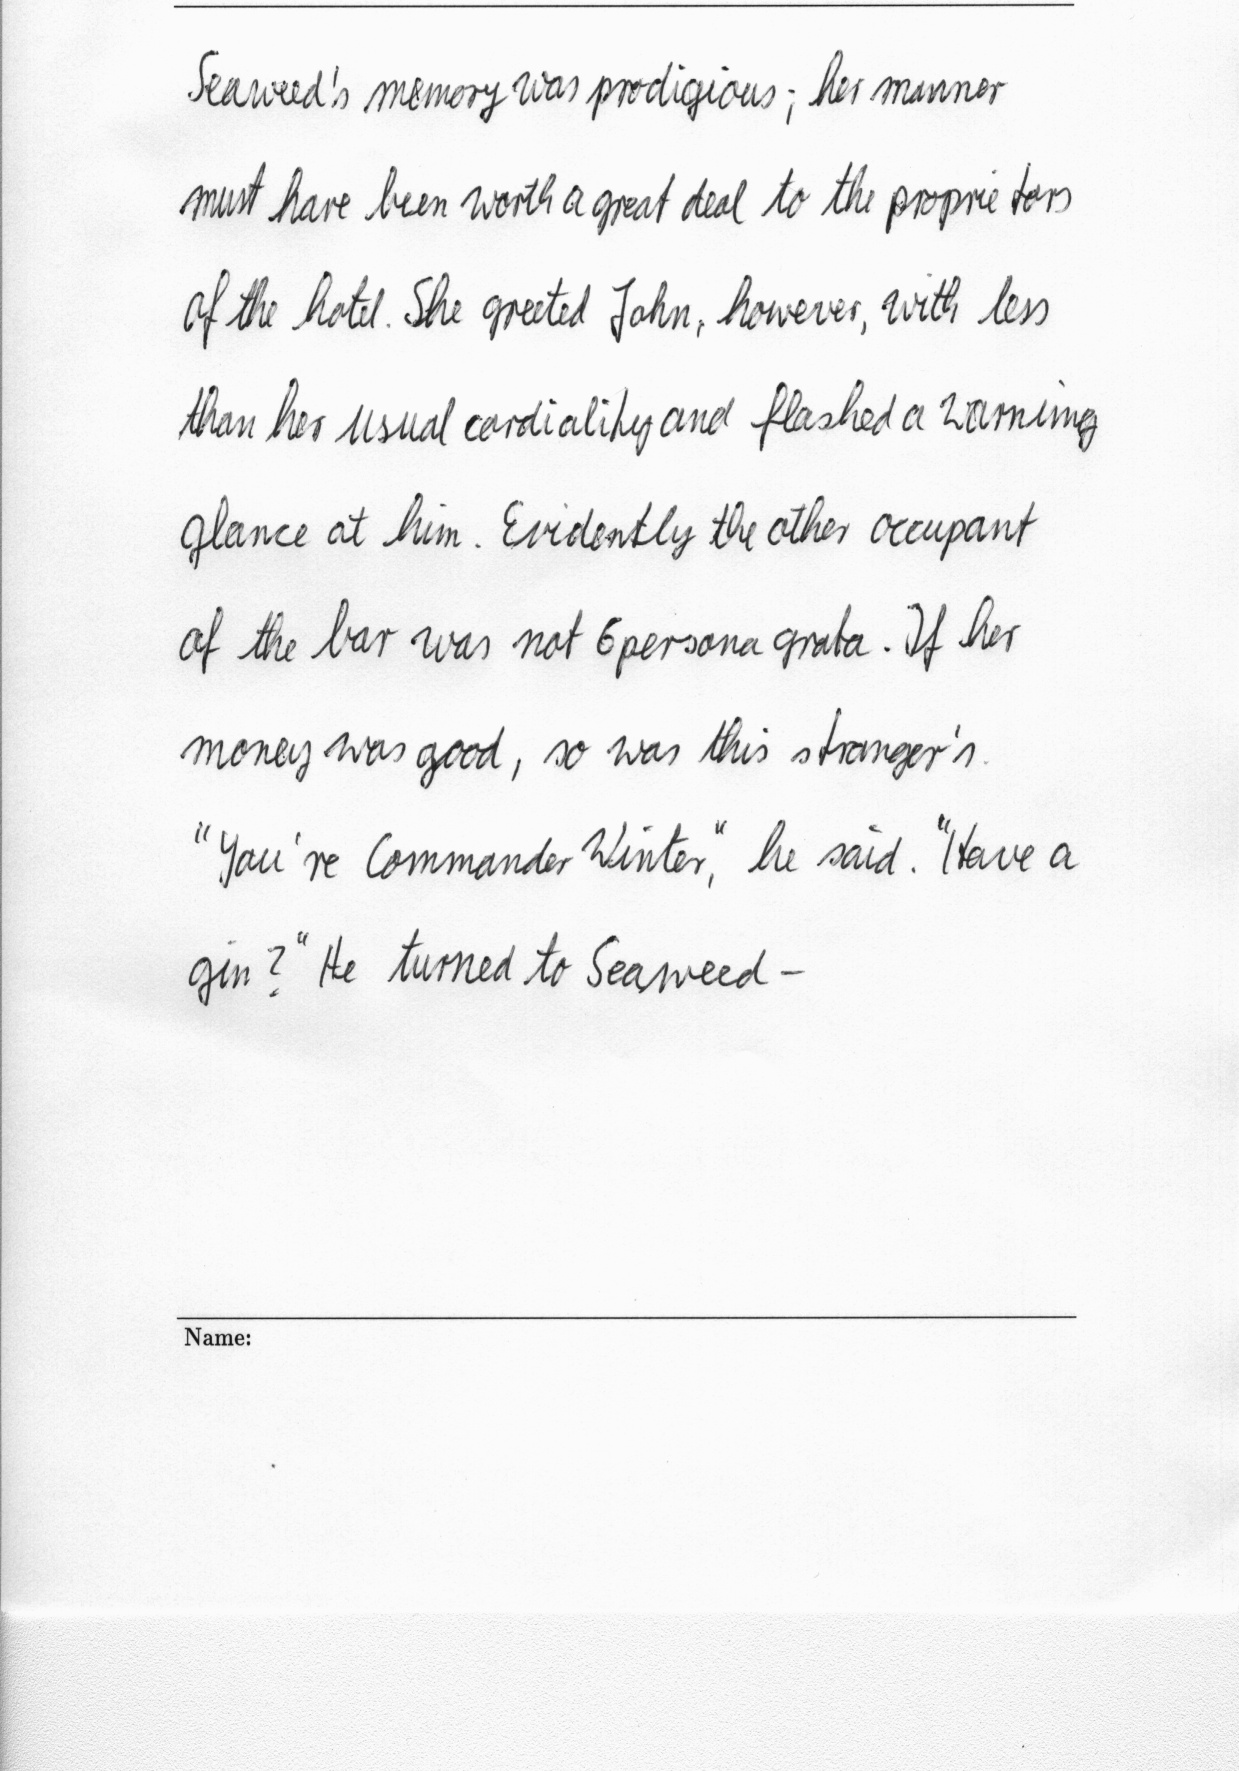 Seaweed's memory was prodigious; her manner
must have been worth a great deal to the proprietors
of the hotel. She greeted John, however, with less
than her usual cordiality and flashed a warning
glance at him. Evidently the other occupant
of the bar was not 6persona grata. If her
money was good, so was this stranger's.
"You're Commander Winter," he said. "Have a
gin?" He turned to Seaweed-
Name: